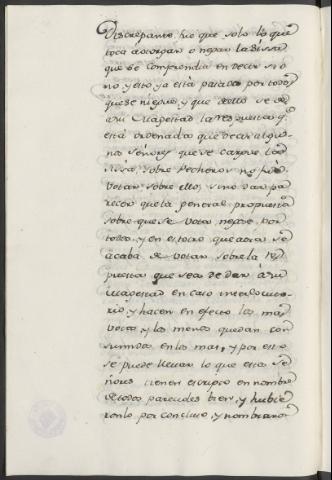 Discrepante, fue que solo lo que
toca a otorgar o negar la Sissa
que se comprehendia en decir si o
no, y esto ya està patado por todos
que se niegue, y que dello se dè
a su Magestad la respuesta q.e
està ordenada que decir algu-
nos Señores que se cargue la
sissa sobre Pecheros no
votar sobre ello, sino dar pa-
recer que la general propuesta
sobre que se vota negose por
todos, y en esto que aora se
acaba de votar sobre la res-
puesta que se a de dar à su
Magestad en caso
rio, y hacen en efecto los mas
votos, y los menos quedan con
sumidos en los mas, y por esto
se puede llevar lo que estos Se-
ñores tienen escripto en nombre
de todos parecides bien, y hubie
ronlo por concluso, y nombraron